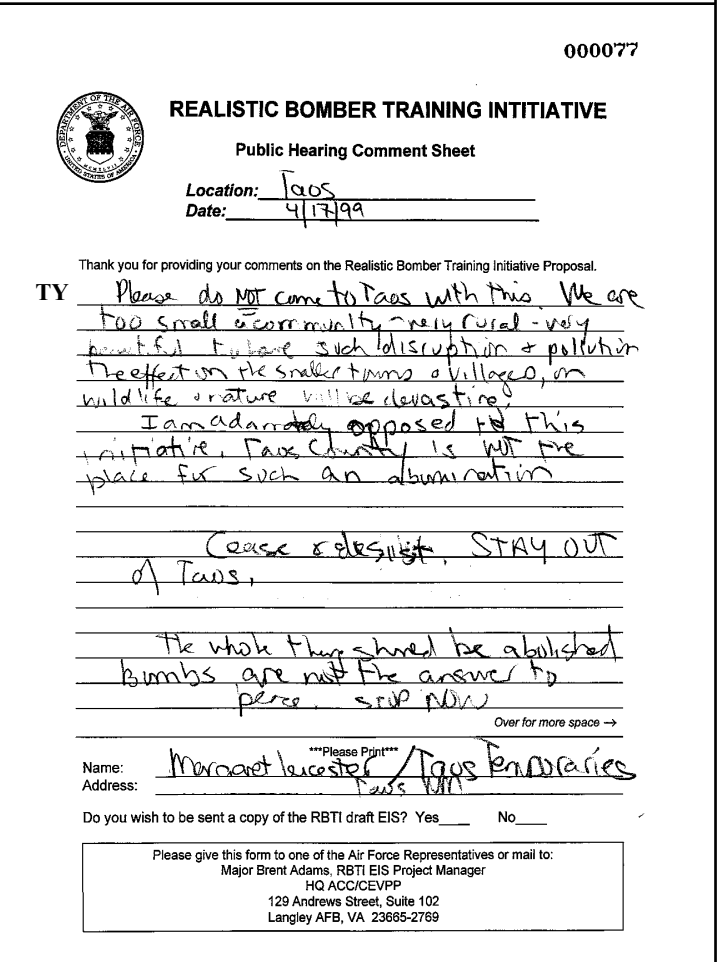 000077
DEPARTMENT OF THE AIR FORCE
MCMXLVII
UNITED STATES OF AMERICA
REALISTIC BOMBER TRAINING INTITIATIVE
Public Hearing Comment Sheet
Location: Taos
Date: 4/17/99
Thank you for providing your comments on the Realistic Bomber Training Initiative Proposal.
TY Please do NOT come to Taos with this. We are
too small a community - very rural - very
beautiful to have such disruption & pollution
The effect on the smaller towns & villages, on
wildlife & nature will be devasting.
I am adamately opposed to this
initiative. Taos County is NOT the
place for such an abomination
Cease & desist. STAY OUT
of Taos.
The whole thing should be abolished
Bombs are not the answer to
peace. STOP NOW
Over for more space →
***Please Print***
Name: Margaret Leicester / Taos Temporaries
Address: Taos NM
Do you wish to be sent a copy of the RBTI draft EIS? Yes____ No____
Please give this form to one of the Air Force Representatives or mail to:
Major Brent Adams, RBTI EIS Project Manager
HQ ACC/CEVPP
129 Andrews Street, Suite 102
Langley AFB, VA 23665-2769